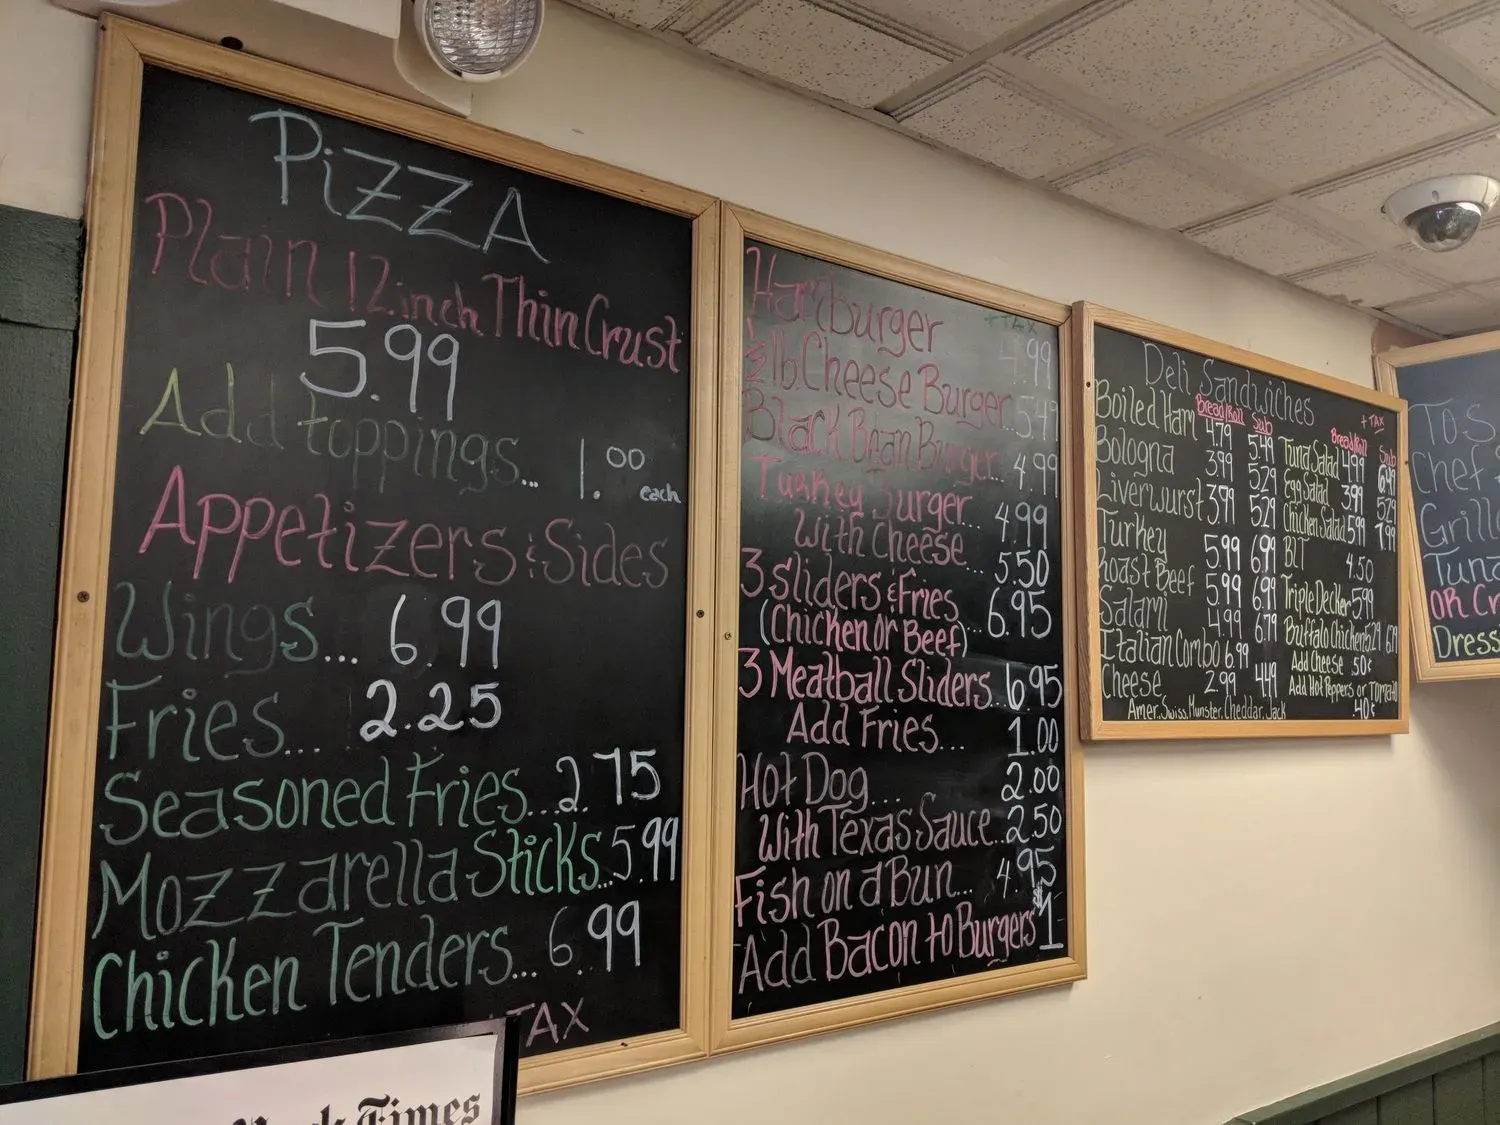 PiZZA
Plain 12 inch Thin Crust
5.99
Add toppings... 1.00 each
Appetizers & Sides
Wings... 6.99
Fries... 2.25
Seasoned Fries... 2.75
Mozzarella Sticks... 5.99
Chicken Tenders... 6.99
TAX
Hamburger
+ TAX
4.99
1/2 lb. Cheese Burger.. 5.49
Black Bean Burger... 4.99
Turkey Burger... 4.99
With Cheese... 5.50
3 sliders & Fries
(Chicken Or Beef)... 6.95
3 Meatball Sliders... 6.95
Add Fries... 1.00
Hot Dog... 2.00
With Texas Sauce... 2.50
Fish on a Bun... 4.95
Add Bacon to Burgers $1
Deli Sandwiches
+ TAX
Bread/Roll Sub
Boiled Ham 4.79 5.49
Bologna 3.99 5.29
Liverwurst 3.99 5.29
Turkey 5.99 6.99
Roast Beef 5.99 6.99
Salami 4.99 6.79
Italian Combo 6.99
Cheese 2.99 4.49
Amer, Swiss, Munster, Cheddar, Jack
Bread/Roll Sub
Tuna Salad 4.99 6.49
Egg Salad 3.99 5.29
Chicken Salad 5.99 7.99
BLT 4.50
Triple Decker 5.99
Buffalo Chicken 5.29
Add Cheese .50¢
Add Hot Peppers or Tomato
.40¢
Chef
OR
Dress
Times